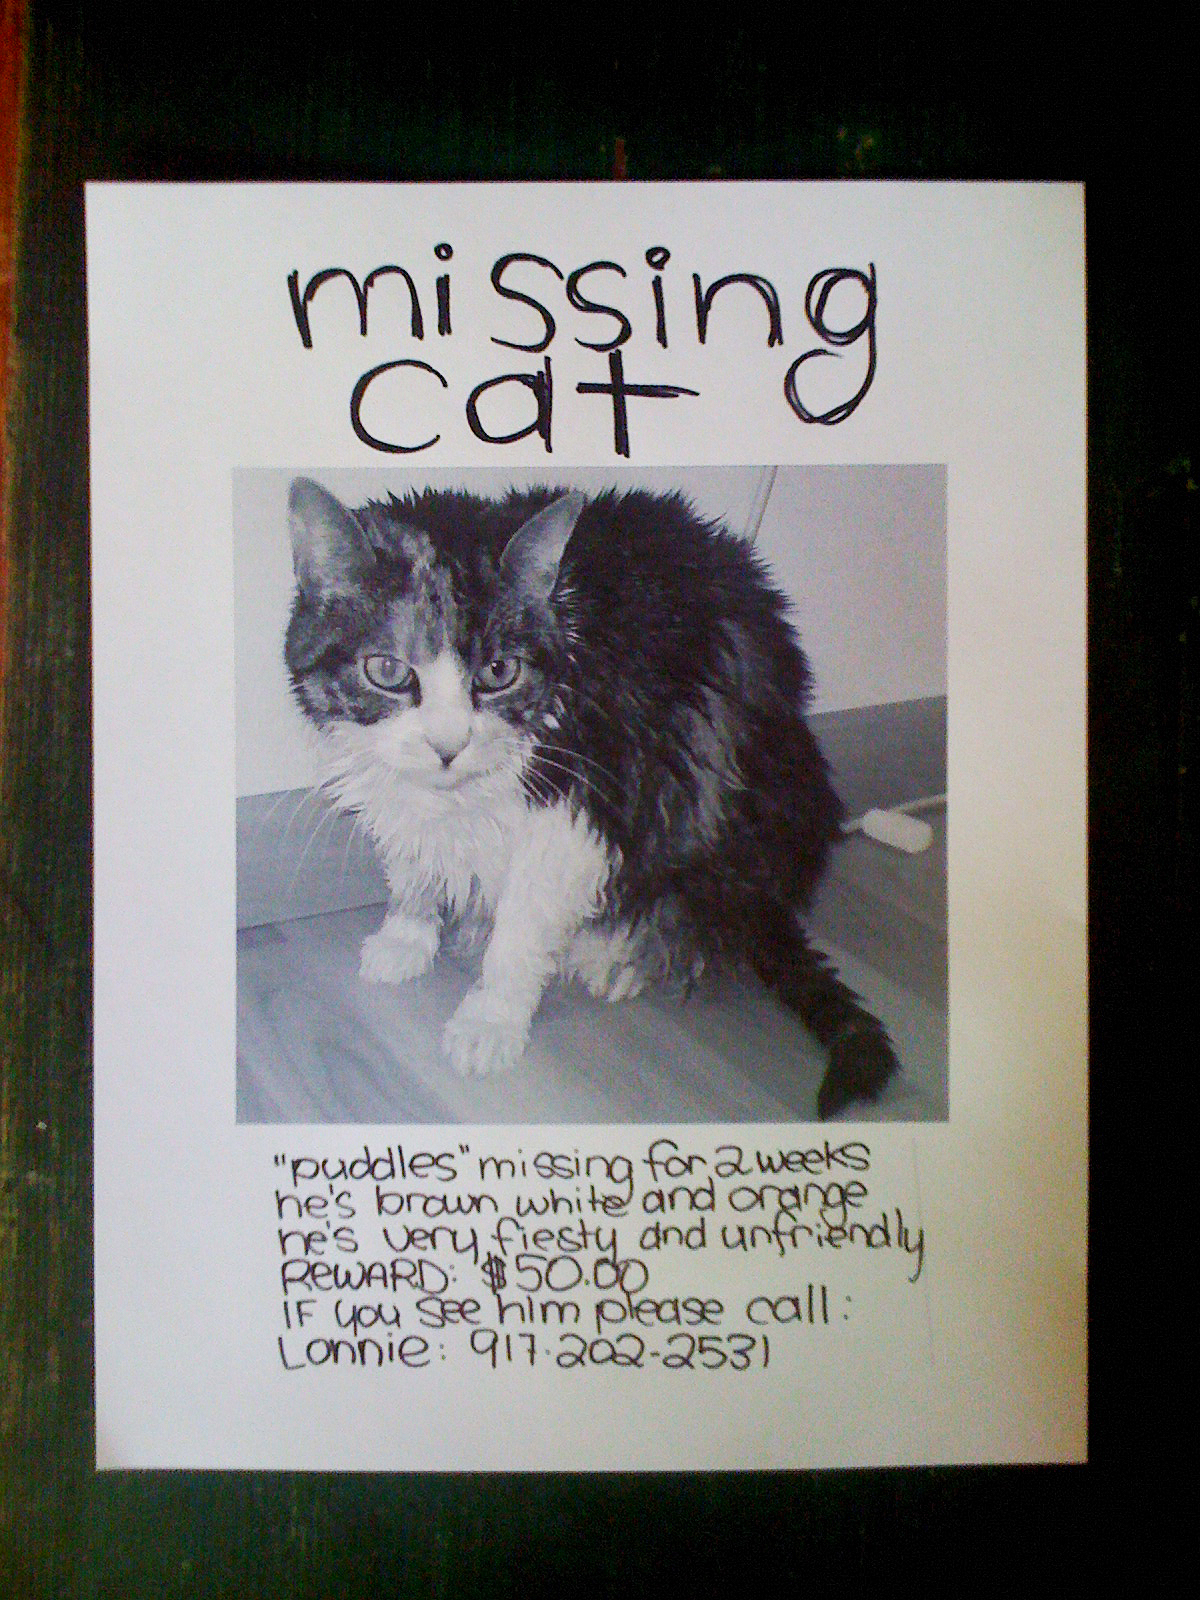 missing
cat
"puddles" missing for 2 weeks
he's brown white and orange
he's very fiesty and unfriendly
REWARD: $50.00
IF you see him please call:
Lonnie: 917-202-2531